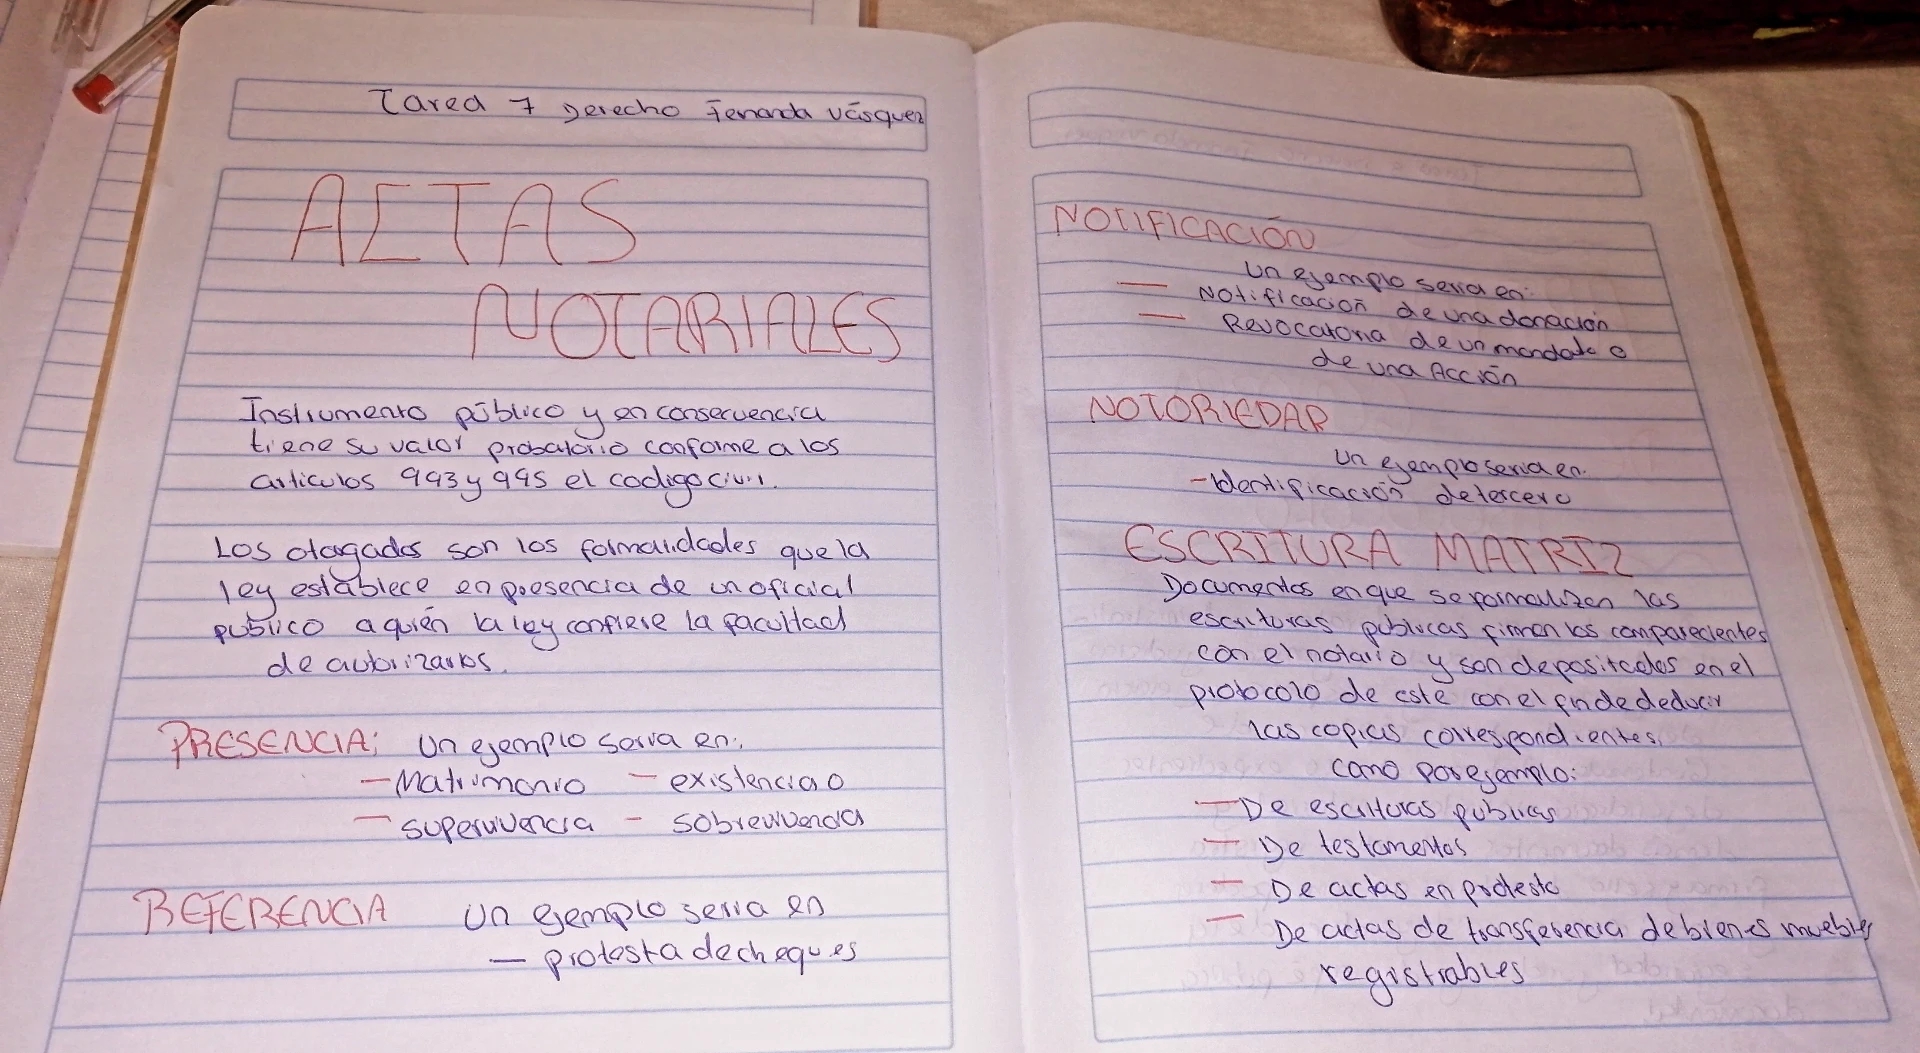 Tarea 7 Derecho Fernanda Vásquez
ACTAS
NOTARIALES
Instrumento público y en consecuencia
tiene su valor probatorio conforme a los
articulos 993 y 995 el codigo civil.
Los otagados son los formalidades que la
ley establece en presencia de un oficial
público a quién la ley confiere la facultad
de autorizarlos.
PRESENCIA: Un ejemplo seria en:
— Matrimonio — existencia o
— supervivencia — sobrevivencia
REFERENCIA Un ejemplo seria en
— protesta de cheques
NOTIFICACIÓN
Un ejemplo seria en:
— Notificación de una donación
— Revocatoria de un mandato o
de una Acción
NOTORIEDAR
Un ejemplo seria en:
- Identificación de tercero
ESCRITURA MATRIZ
Documentos en que se formalizen las
escrituras públicas firman los comparecientes
con el notario y son depositados en el
protocolo de este con el fin de deducir
las copias correspondientes,
como por ejemplo:
— De escrituras publicas
— De testamentos
— De actas en protesto
— De actas de transferencia de bienes muebles
registrables